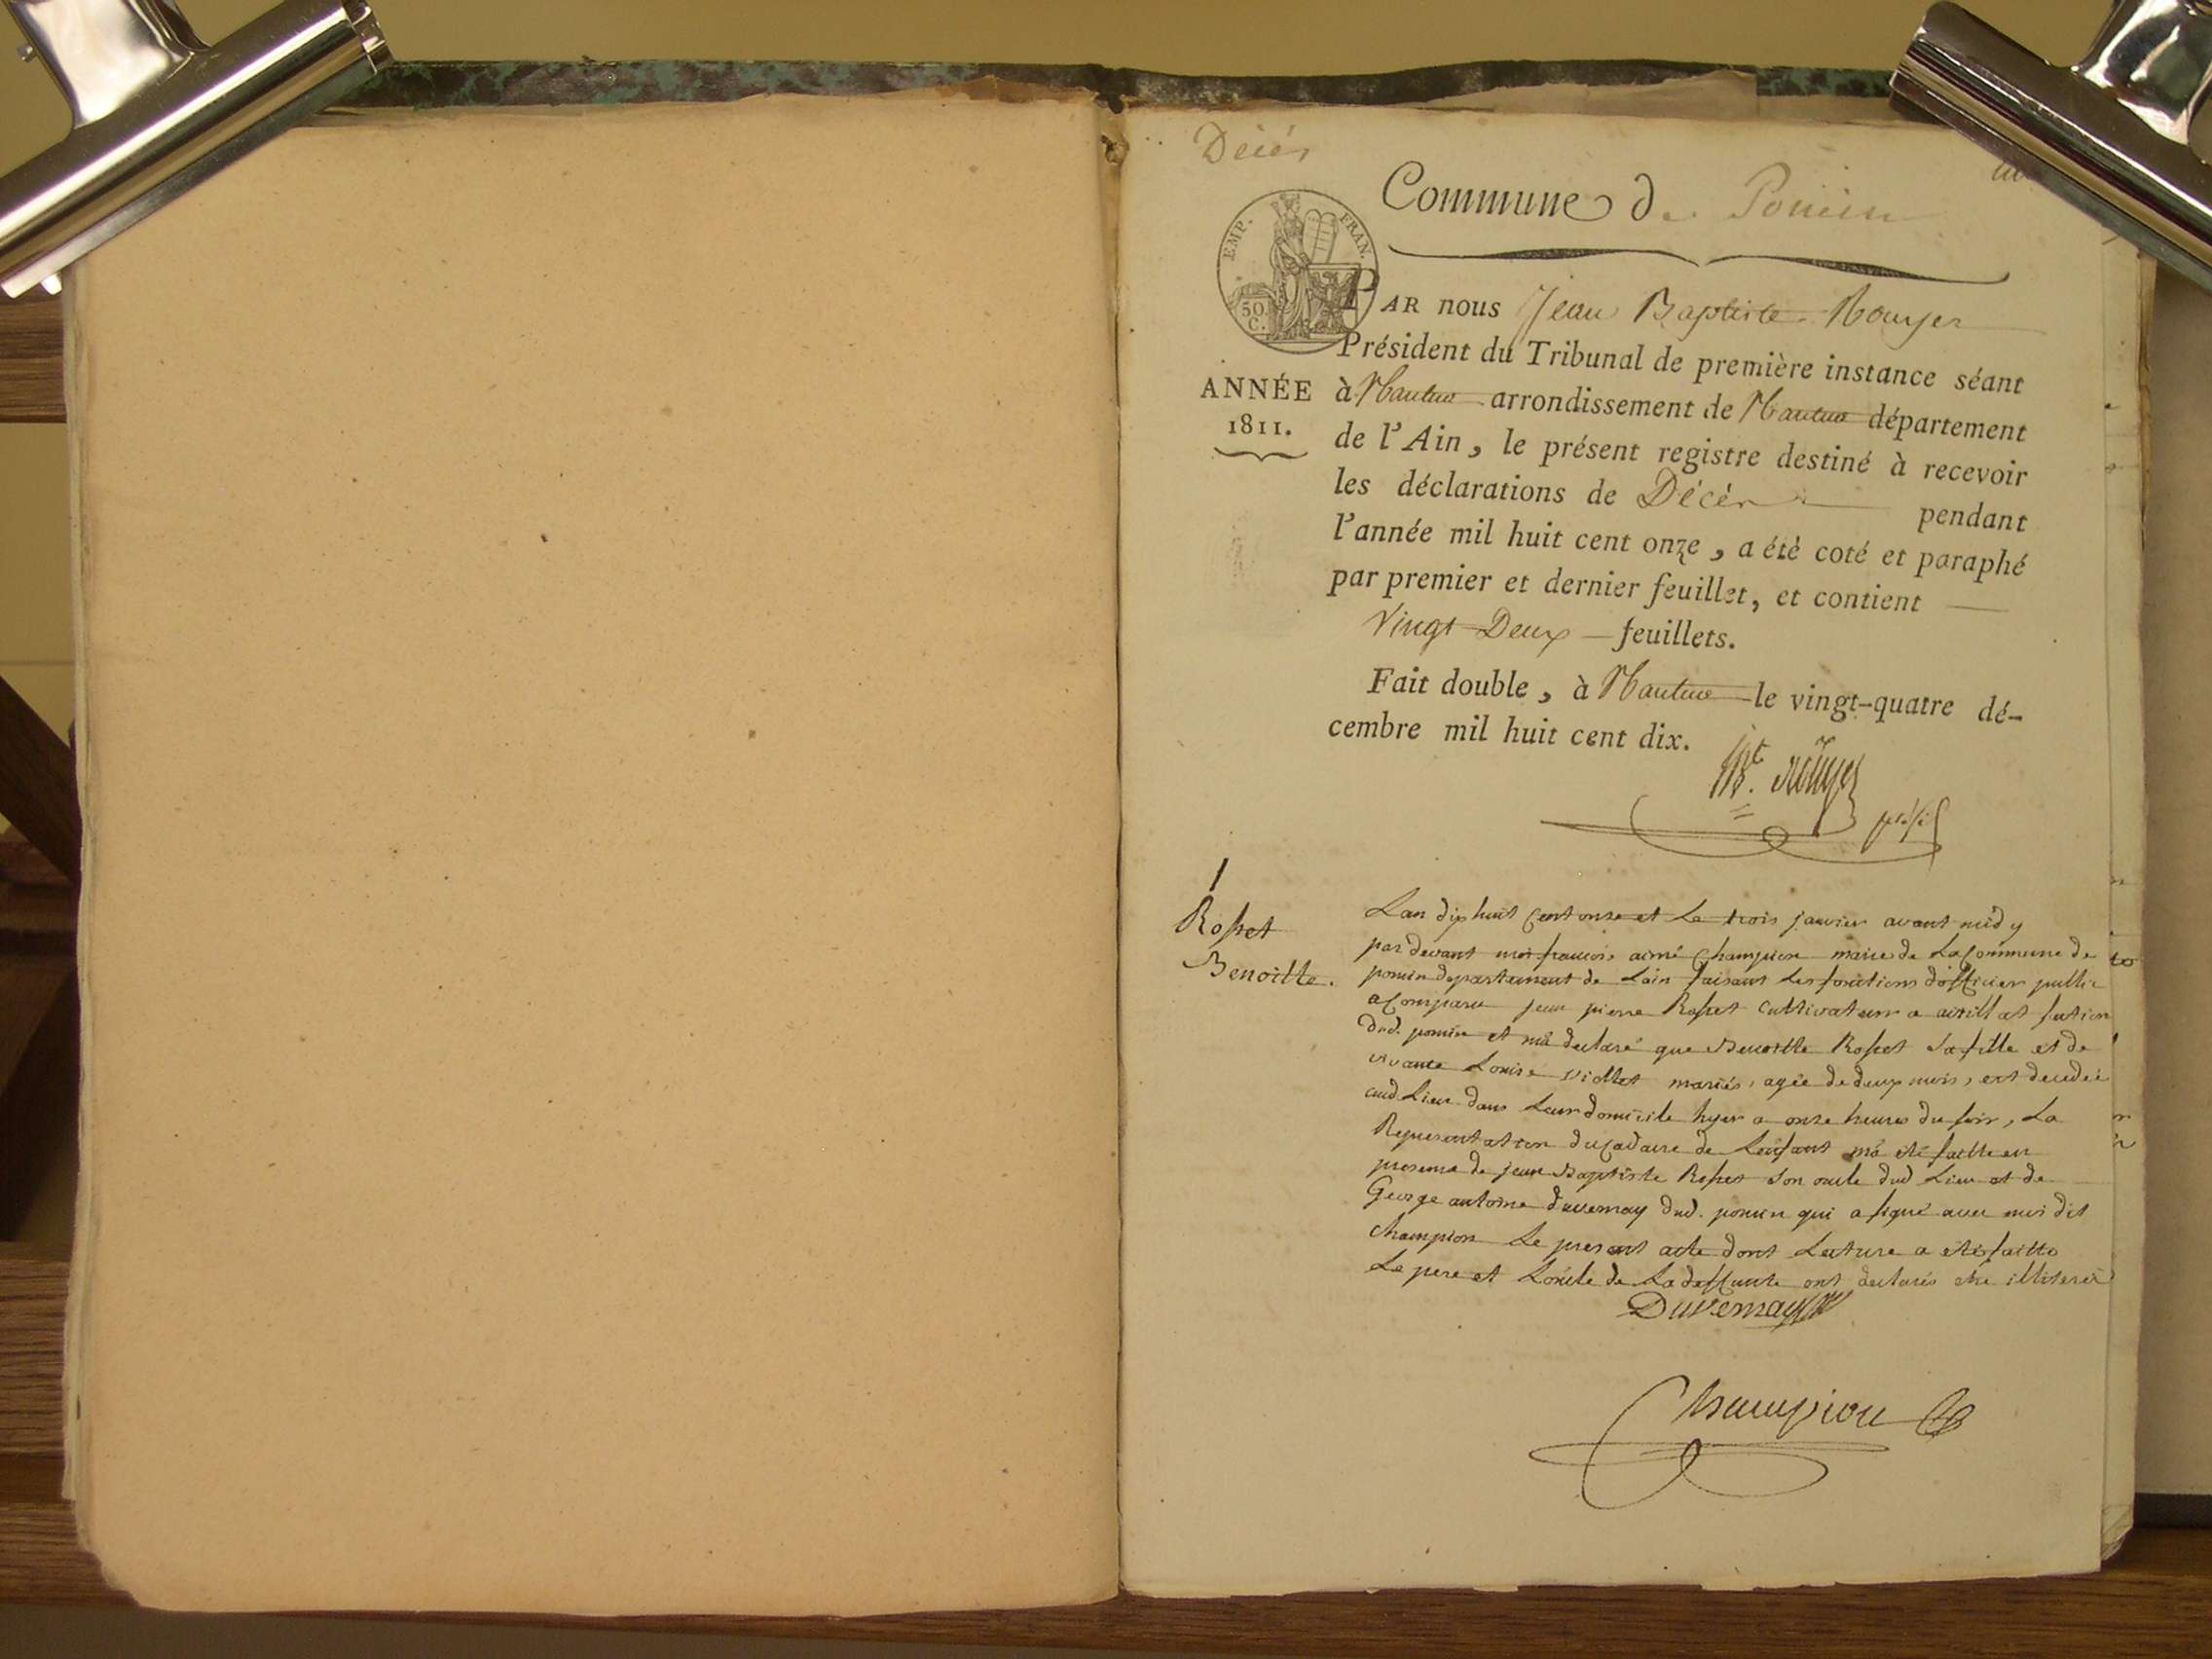 Décés
Commune de Poncin
EMP. FRAN.
50 C.
PAR nous Jean Baptiste Rouyer
Président du Tribunal de première instance séant
ANNÉE
1811.
à Nantua arrondissement de Nantua département
de l'Ain, le présent registre destiné à recevoir
les déclarations de Décés pendant
l'année mil huit cent onze, a été coté et paraphé
par premier et dernier feuillet, et contient
Vingt Deux feuillets.
Fait double, à Nantua le vingt-quatre dé-
cembre mil huit cent dix.
Bt. Rouyer
présid
1
Rosset
Benoitte.
Lan dix huit cent onze et Le trois janvier avant midy
par devant moi francois aimé Champion maire de La Commune de
poncin departement de Lain faisant Les fonctions dofficier public
a Comparu jean pierre Rosset Cultivateur a section
dud. poncin et m'a declaré que Benoitte Rosset sa fille et de
vivante Louise Viollet mariés, agée de deux mois, est decedée
aud. Lieu dans Leur domicile hyer a onze heures du soir, La
Representation du Cadavre de Lenfant m'a été faitte en
presence de jean Baptiste Rosset son oncle dud Lieu et de
George antoine duvernay dud. poncin qui a signé avec moi dit
Champion Le present acte dont Lecture a été faitte
Le pere et Loncle de La deffunte ont declarés être illiterés
Duvernay
Champion